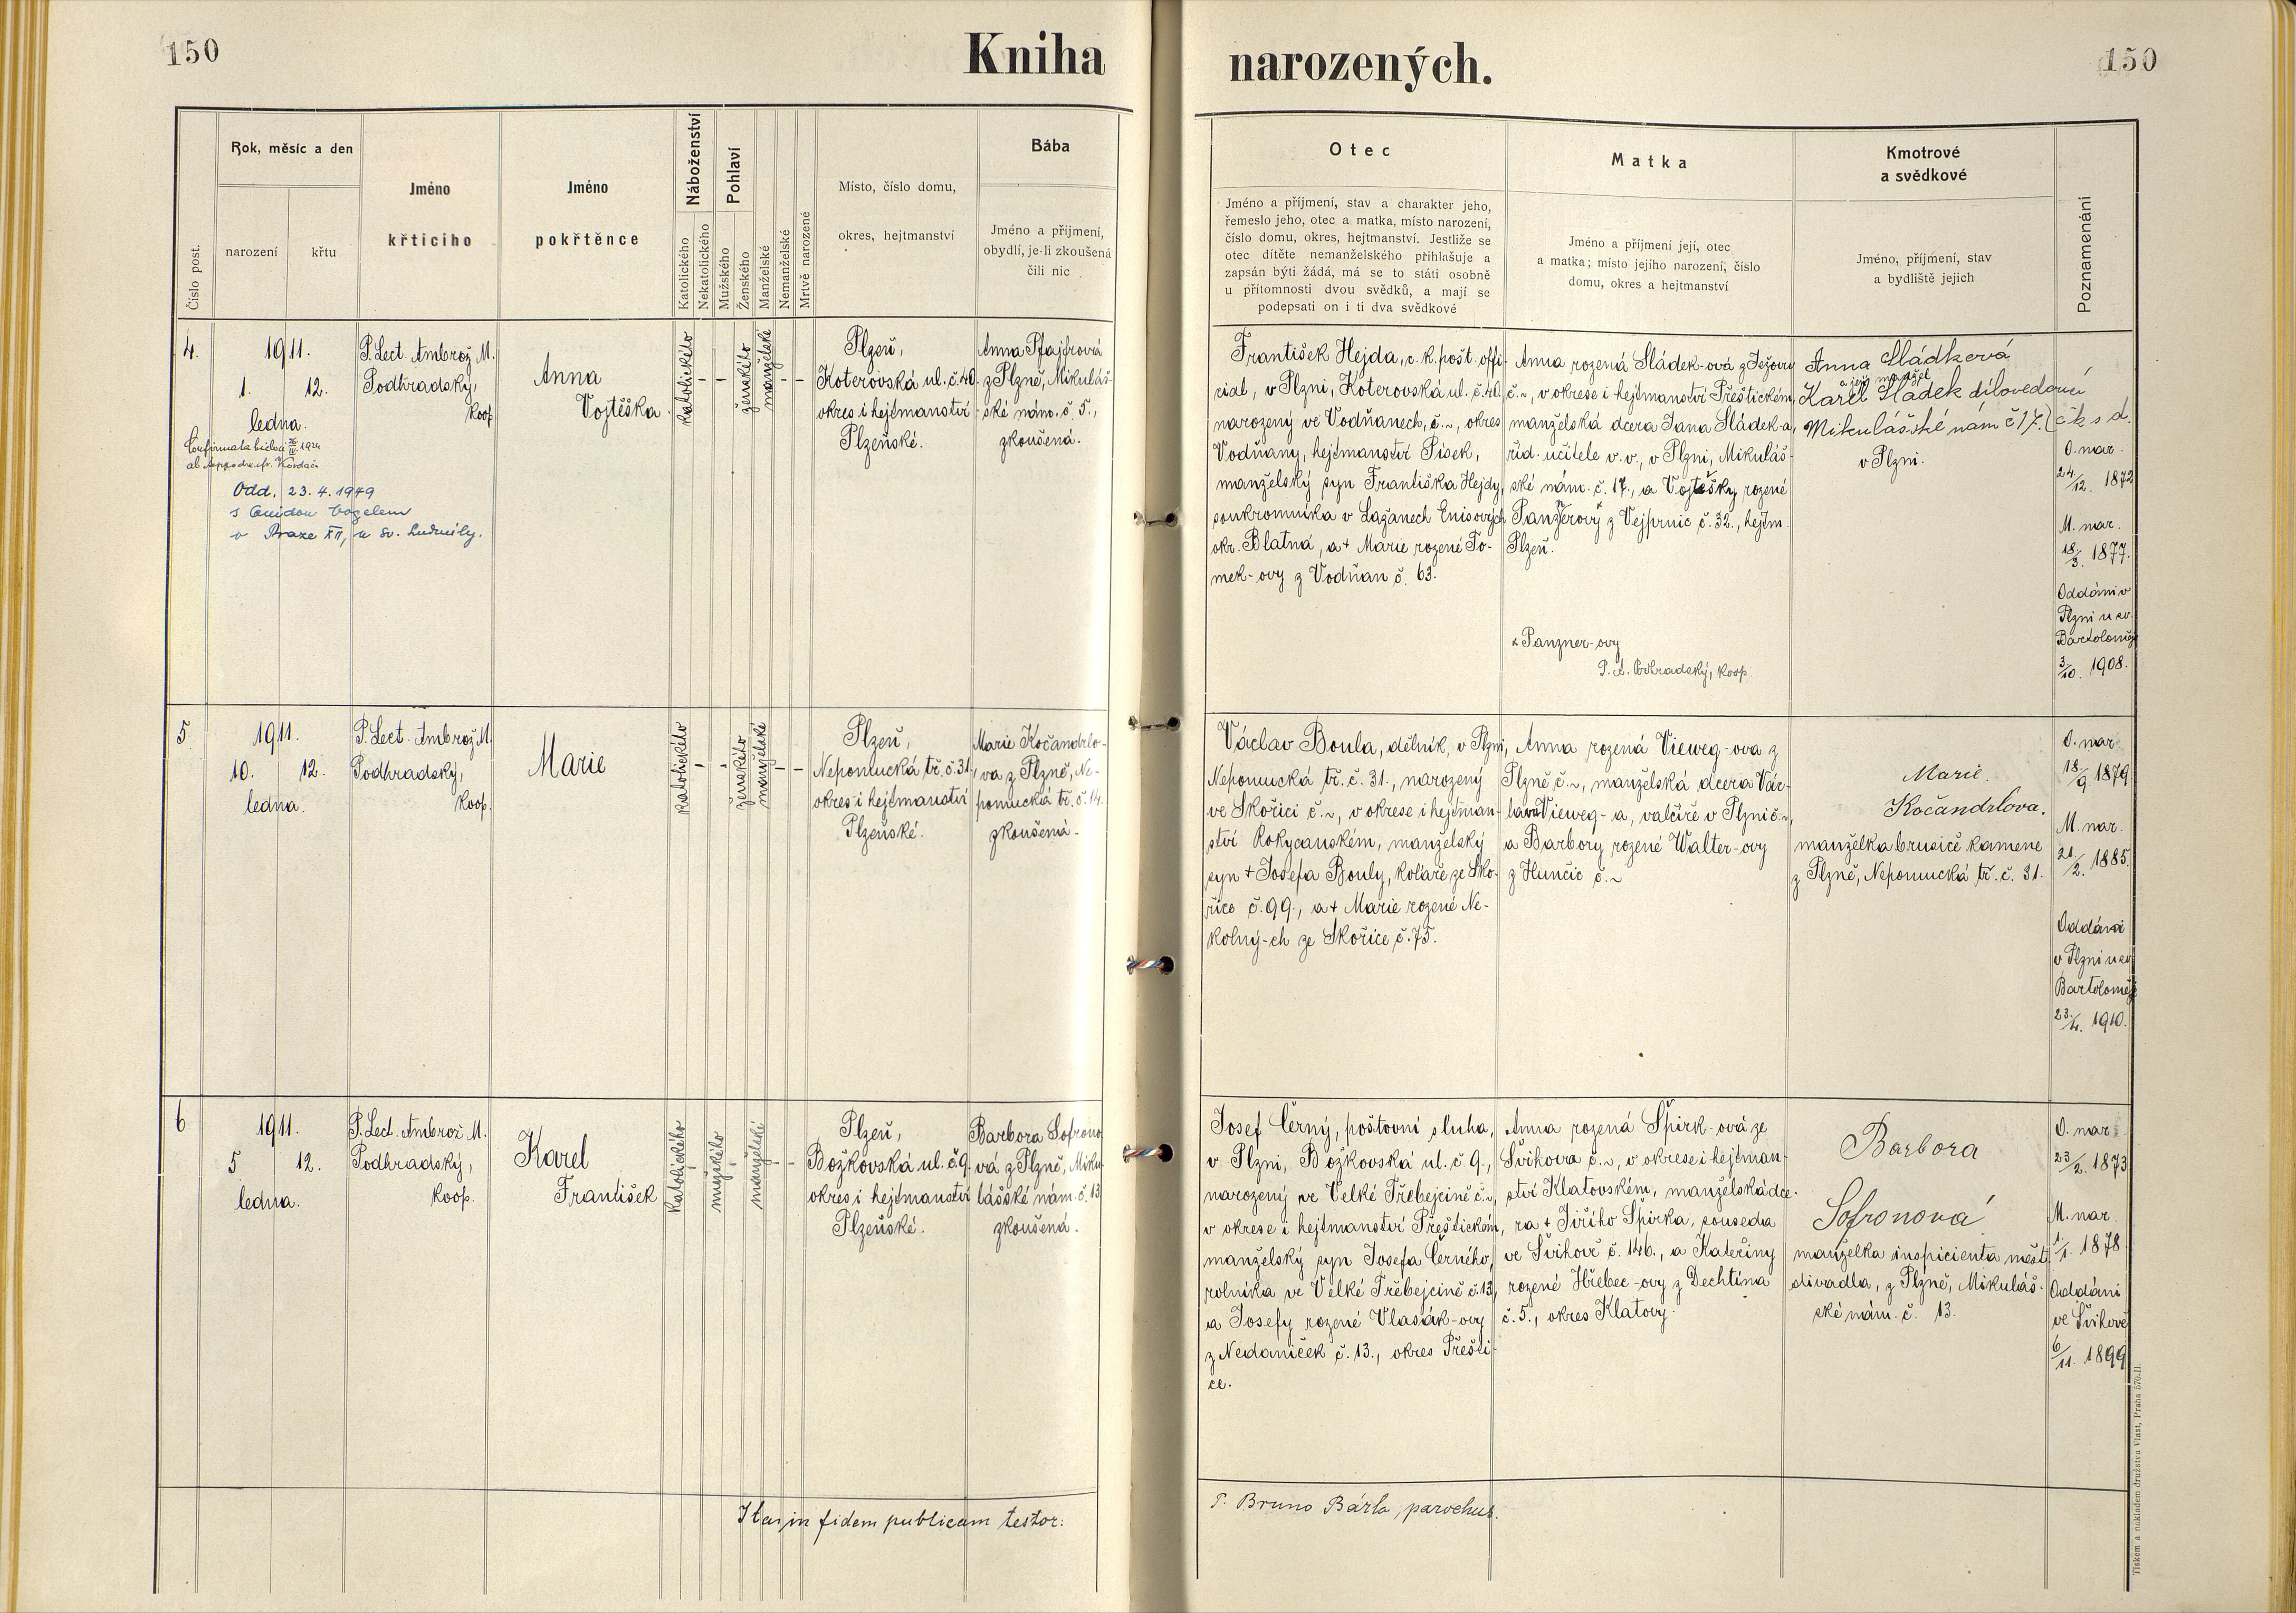 150
Kniha narozených.
150
Číslo post.
Rok, měsíc a den
narození
křtu
Jméno
křticího
Jméno
pokřtěnce
Náboženství
Katolického
Nekatolického
Pohlaví
Mužského
Ženského
Manželské
Nemanželské
Mrtvě narozené
Místo, číslo domu,
okres, hejtmanství
Bába
Jméno a příjmení,
obydlí, je-li zkoušená
čili nic
Otec
Jméno a příjmení, stav a charakter jeho,
řemeslo jeho, otec a matka, místo narození,
číslo domu, okres, hejtmanství. Jestliže se
otec dítěte nemanželského přihlašuje a
zapsán býti žádá, má se to státi osobně
u přítomnosti dvou svědků, a mají se
podepsati on i ti dva svědkové
Matka
Jméno a příjmení její, otec
a matka; místo jejího narození, číslo
domu, okres a hejtmanství
Kmotrové
a svědkové
Jméno, příjmení, stav
a bydliště jejich
Poznamenání
4.
1911.
1. 12.
ledna.
Odd. 23. 4. 1949
s Quidou Vogelem
v Praze XII, u sv. Ludmily.
P. Lect. Ambrož M.
Podhradský,
koop.
Anna
Vojtěška.
katolického
-
-
ženského
manželské
-
-
Plzeň,
Koterovská ul. č. 40.
okres i hejtmanství
Plzeňské.
Anna Pfajfrová
z Plzně, Mikuláš-
ské nám. č. 5.,
zkoušená.
František Hejda, c. k. pošt. offi-
cial, v Plzni, Koterovská ul. č. 40.
narozený ve Vodňanech, č. ~, okres
Vodňany, hejtmanství Písek,
manželský syn Františka Hejdy,
soukromníka v Lažanech Enisových
okr. Blatná, a + Marie rozené To-
mek-ovy z Vodňan č. 63.
Anna rozená Sládek-ová z Ježovy
č. ~, v okrese i hejtmanství Přeštickém,
manželská dcera Jana Sládek-a,
říd. učitele v. v., v Plzni, Mikuláš-
ské nám. č. 17., a Vojtěšky rozené
Panzerovy x z Vejprnic č. 32., hejtm.
Plzeň.
x Panzner-ovy
P. A. Podhradský, koop.
Anna Sládková
a její manžel
Karel Sládek dílovedoucí
Mikulášské nám č 17. č k s d.
v Plzni.
O. nar.
24/12. 1872
M. nar.
18/3. 1877.
Oddáni v
Plzni u sv.
Bartoloměje
3/10. 1908.
5
1911.
10. 12.
ledna.
P. Lect. Ambrož M.
Podhradský,
koop.
Marie
katolického
-
-
ženského
manželské
-
-
Plzeň,
Nepomucká tř. č. 31.,
okres i hejtmanství
Plzeňské.
Marie Kočandrlo-
va z Plzně, Ne-
pomucká tř. č. 14.
zkoušená.
Václav Boula, dělník, v Plzni,
Nepomucká tř. č. 31., narozený
ve Skořici č. ~, v okrese i hejtman-
ství Rokycanském, manželský
syn + Josefa Bouly, koláře ze Sko-
řice č. 99., a + Marie rozené Ne-
kolný-ch ze Skořice č. 75.
Anna rozená Vieweg-ova z
Plzně č. ~, manželská dcera Vác-
lava Vieweg-a, valcíře v Plzni č. ~,
a Barbory rozené Walter-ovy
z Hunčic č. ~
Marie
Kočandrlova.
manželka brusiče kamene
z Plzně, Nepomucká tř. č. 31.
O. nar.
18/9. 1879
M. nar.
21/2. 1885.
Oddáni
v Plzni u sv
Bartoloměje
23/4. 1910.
6
1911.
5 12.
ledna.
P. Lect. Ambrož M.
Podhradský,
koop.
Karel
František
katolického
-
mužského
-
manželské
-
-
Plzeň,
Božkovská ul. č. 9.
okres i hejtmanství
Plzeňské.
Barbora Sofrono-
vá z Plzně, Miku-
lášské nám. č. 13
zkoušená.
Josef Černý, poštovní sluha,
v Plzni, Božkovská ul. č. 9.,
narozený ve Velké Třebejcině č. ~,
v okrese i hejtmanství Přeštickém,
manželský syn Josefa Černého,
rolníka ve Velké Třebejcině č. 13,
a Josefy rozené Vlasák-ovy
z Nedaniček č. 13., okres Přešti-
ce.
Anna rozená Špirk-ová ze
Švihova č. ~, v okrese i hejtman-
ství Klatovském, manželská dce-
ra + Jiřího Špirka, souseda
ve Švihově č. 146., a Kateřiny
rozené Hřebec-ovy z Dechtína
č. 5., okres Klatovy.
Barbora
Sofronová
manželka inspicienta měst.
divadla, z Plzně, Mikuláš-
ské nám. č. 13.
O. nar.
23/2. 1873
M. nar.
1/1. 1878.
Oddáni
ve Švihově
6/11. 1899
Ita in fidem publicam testor:
P. Bruno Bárta, parochus.
Tiskem a nákladem družstva Vlast, Praha 570-II.